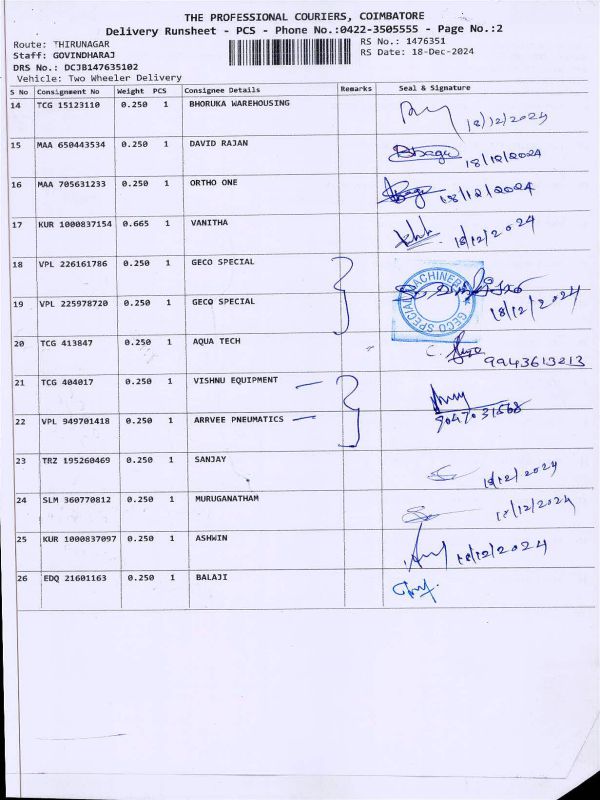 THE PROFESSIONAL COURIERS, COIMBATORE
Delivery Runsheet - PCS - Phone No.:0422-3505555 - Page No.:2
Route: THIRUNAGAR RS No.: 1476351
Staff: GOVINDHARAJ RS Date: 18-Dec-2024
DRS No.: DCJB147635102
Vehicle: Two Wheeler Delivery
S No Consignment No Weight PCS Consignee Details Remarks Seal & Signature
14 TCG 15123110 0.250 1 BHORUKA WAREHOUSING 18/12/2024
15 MAA 650443534 0.250 1 DAVID RAJAN 18/12/2024
16 MAA 705631233 0.250 1 ORTHO ONE 18/12/2024
17 KUR 1000837154 0.665 1 VANITHA 18/12/2024
18 VPL 226161786 0.250 1 GECO SPECIAL
19 VPL 225978720 0.250 1 GECO SPECIAL 18/12/2024
GECO SPECIAL MACHINERS
20 TCG 413847 0.250 1 AQUA TECH 9943613213
21 TCG 404017 0.250 1 VISHNU EQUIPMENT
22 VPL 949701418 0.250 1 ARRVEE PNEUMATICS
23 TRZ 195260469 0.250 1 SANJAY 18/12/2024
24 SLM 360770812 0.250 1 MURUGANATHAM 18/12/2024
25 KUR 1000837097 0.250 1 ASHWIN 18/12/2024
26 EDQ 21601163 0.250 1 BALAJI